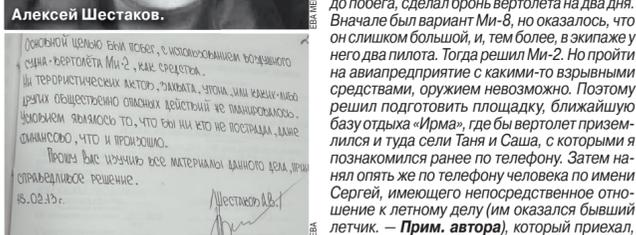 Алексей Шестаков.
Основной целью был побег, с использованием воздушного
судна-вертолёта Ми-2, как средства.
Ни терористических актов, захвата, угона, или каких-либо
других общественно опасных действий не планировалось.
Условием являлось то, что бы ни кто не пострадал, даже
финансово, что и произошло.
Прошу Вас изучив все материалы данного дела,
справедливое решение.
15.02.13г.
Шестаков А.В.
до побега, сделал бронь вертолета на два дня.
Вначале был вариант Ми-8, но оказалось, что
он слишком большой, и, тем более, в экипаже у
него два пилота. Тогда решил Ми-2. Но пройти
на авиапредприятие с какими-то взрывными
средствами, оружием невозможно. Поэтому
решил подготовить площадку, ближайшую
базу отдыха «Ирма», где бы вертолет призем-
лился и туда сели Таня и Саша, с которыми я
познакомился ранее по телефону. Затем на-
нял опять же по телефону человека по имени
Сергей, имеющего непосредственное отно-
шение к летному делу (им оказался бывший
летчик. — Прим. автора), который приехал,